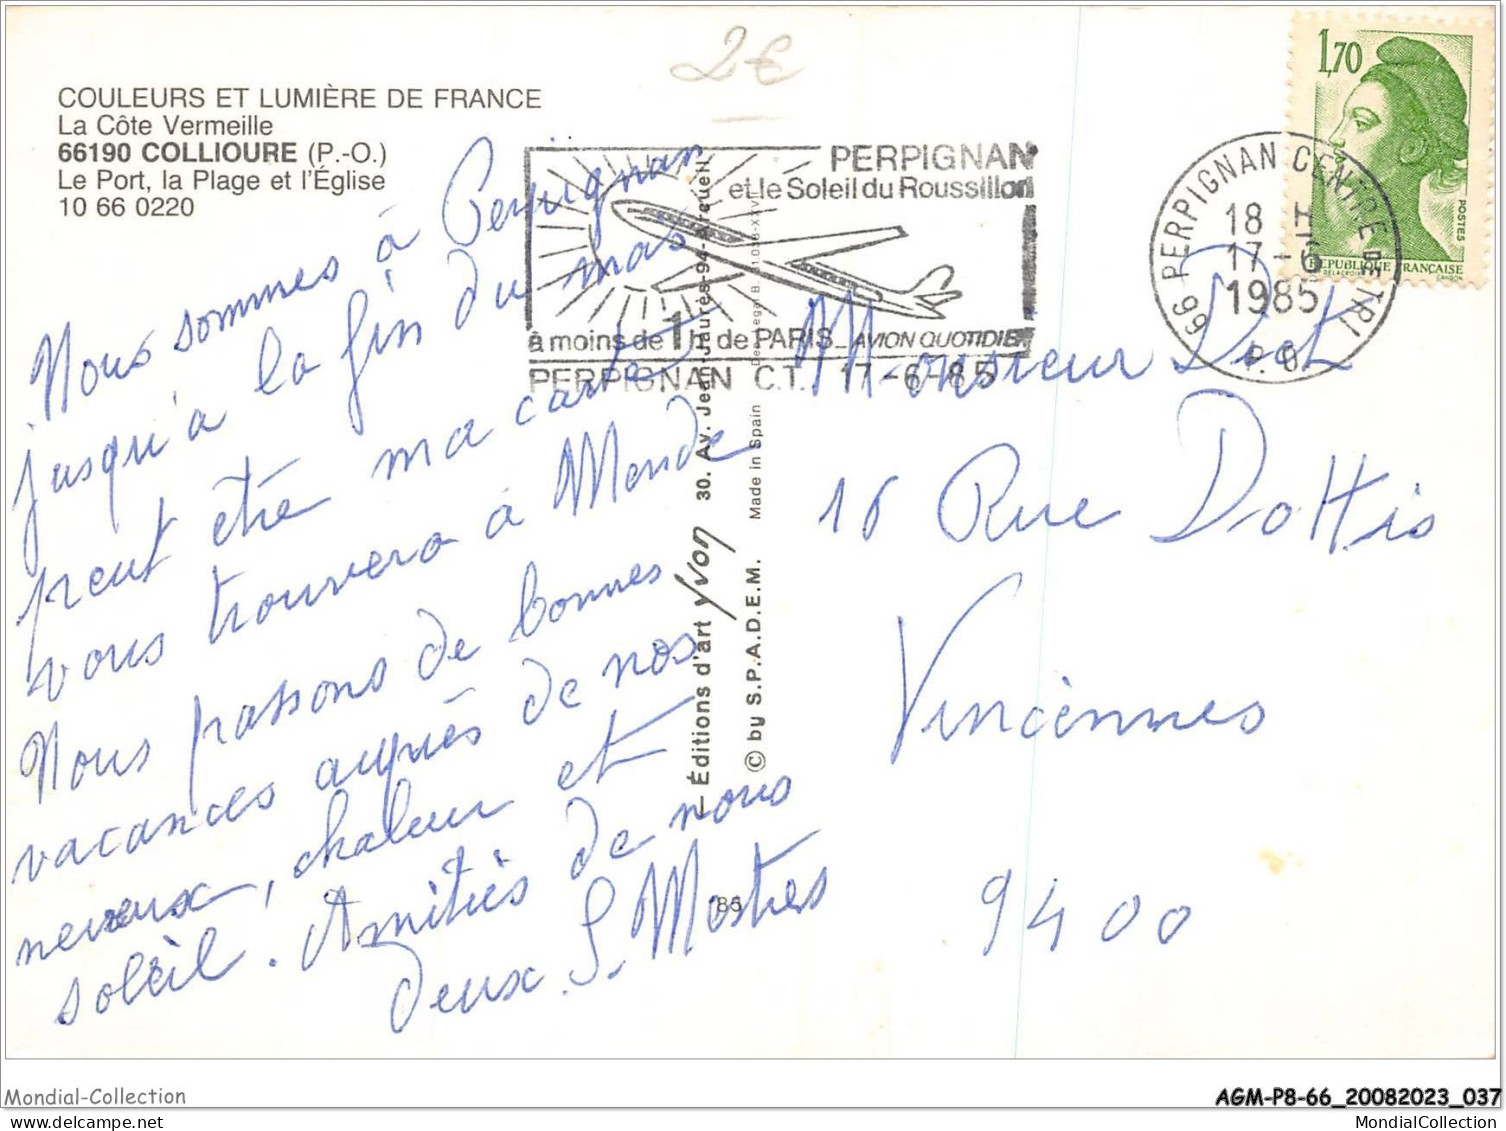 2€
COULEURS ET LUMIÈRE DE FRANCE
La Côte Vermeille
66190 COLLIOURE (P.-O.)
Le Port, la Plage et l'Église
10 66 0220
PERPIGNAN
et le Soleil du Roussillon
à moins de 1h. de PARIS_ AVION QUOTIDIEN
PERPIGNAN C.T. 17-6-85
66 PERPIGNAN CENTRE DE TRI
18 H
17-6
1985
P.O.
1,70
POSTES
REPUBLIQUE FRANÇAISE
Nous sommes à Perpignan
jusqu'a la fin du mois
peut être ma carte
vous trouvera à Mende
Nous passons de bonnes
vacances auprès de nos
neveux, chaleur et
soleil. Amitiés de nous
deux S. Mostres
Éditions d'art Yvon 30. Av. Jean-Jaurès-94-Arcueil
© by S.P.A.D.E.M. Made in Spain
85
Monsieur
16 Rue
Vincennes
9400
Mondial-Collection
AGM-P8-66_20082023_037
MondialCollection